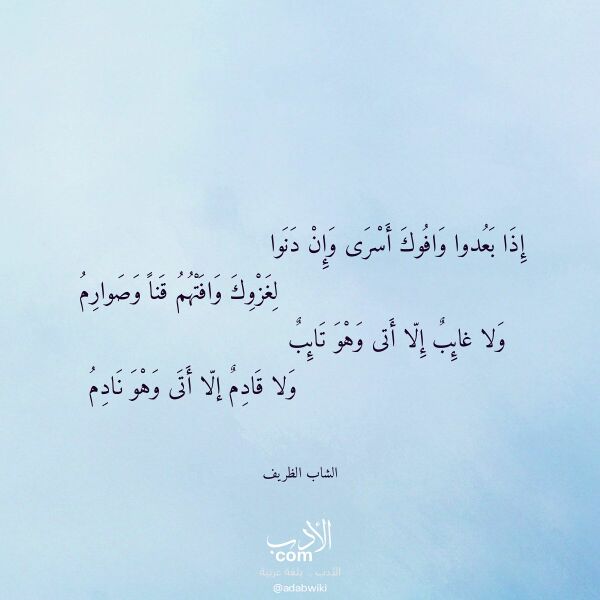 إِذَا بَعُدوا وَافُوكَ أَسْرَى وَإِنْ دَنَوا
لِغَزْوِكَ وَافَتْهُمُ قَناً وَصَوارِمُ
وَلا غائِبٌ إِلّا أَتى وَهْوَ تَائِبٌ
وَلا قَادِمٌ إلّا أَتَى وَهْوَ نَادِمُ
الشاب الظريف
الأدب
com
الأدب .. بلغة عربية
@adabwiki